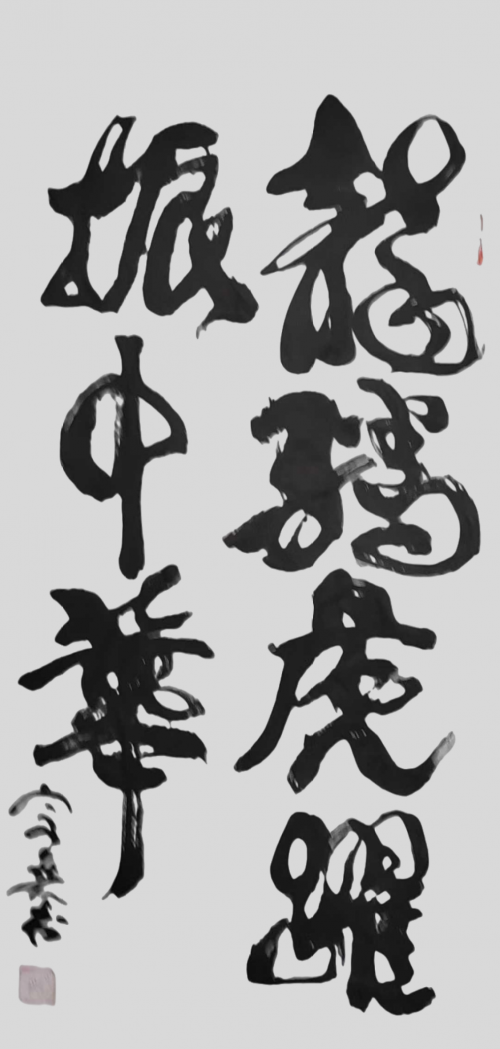 龍騰虎躍
振中華